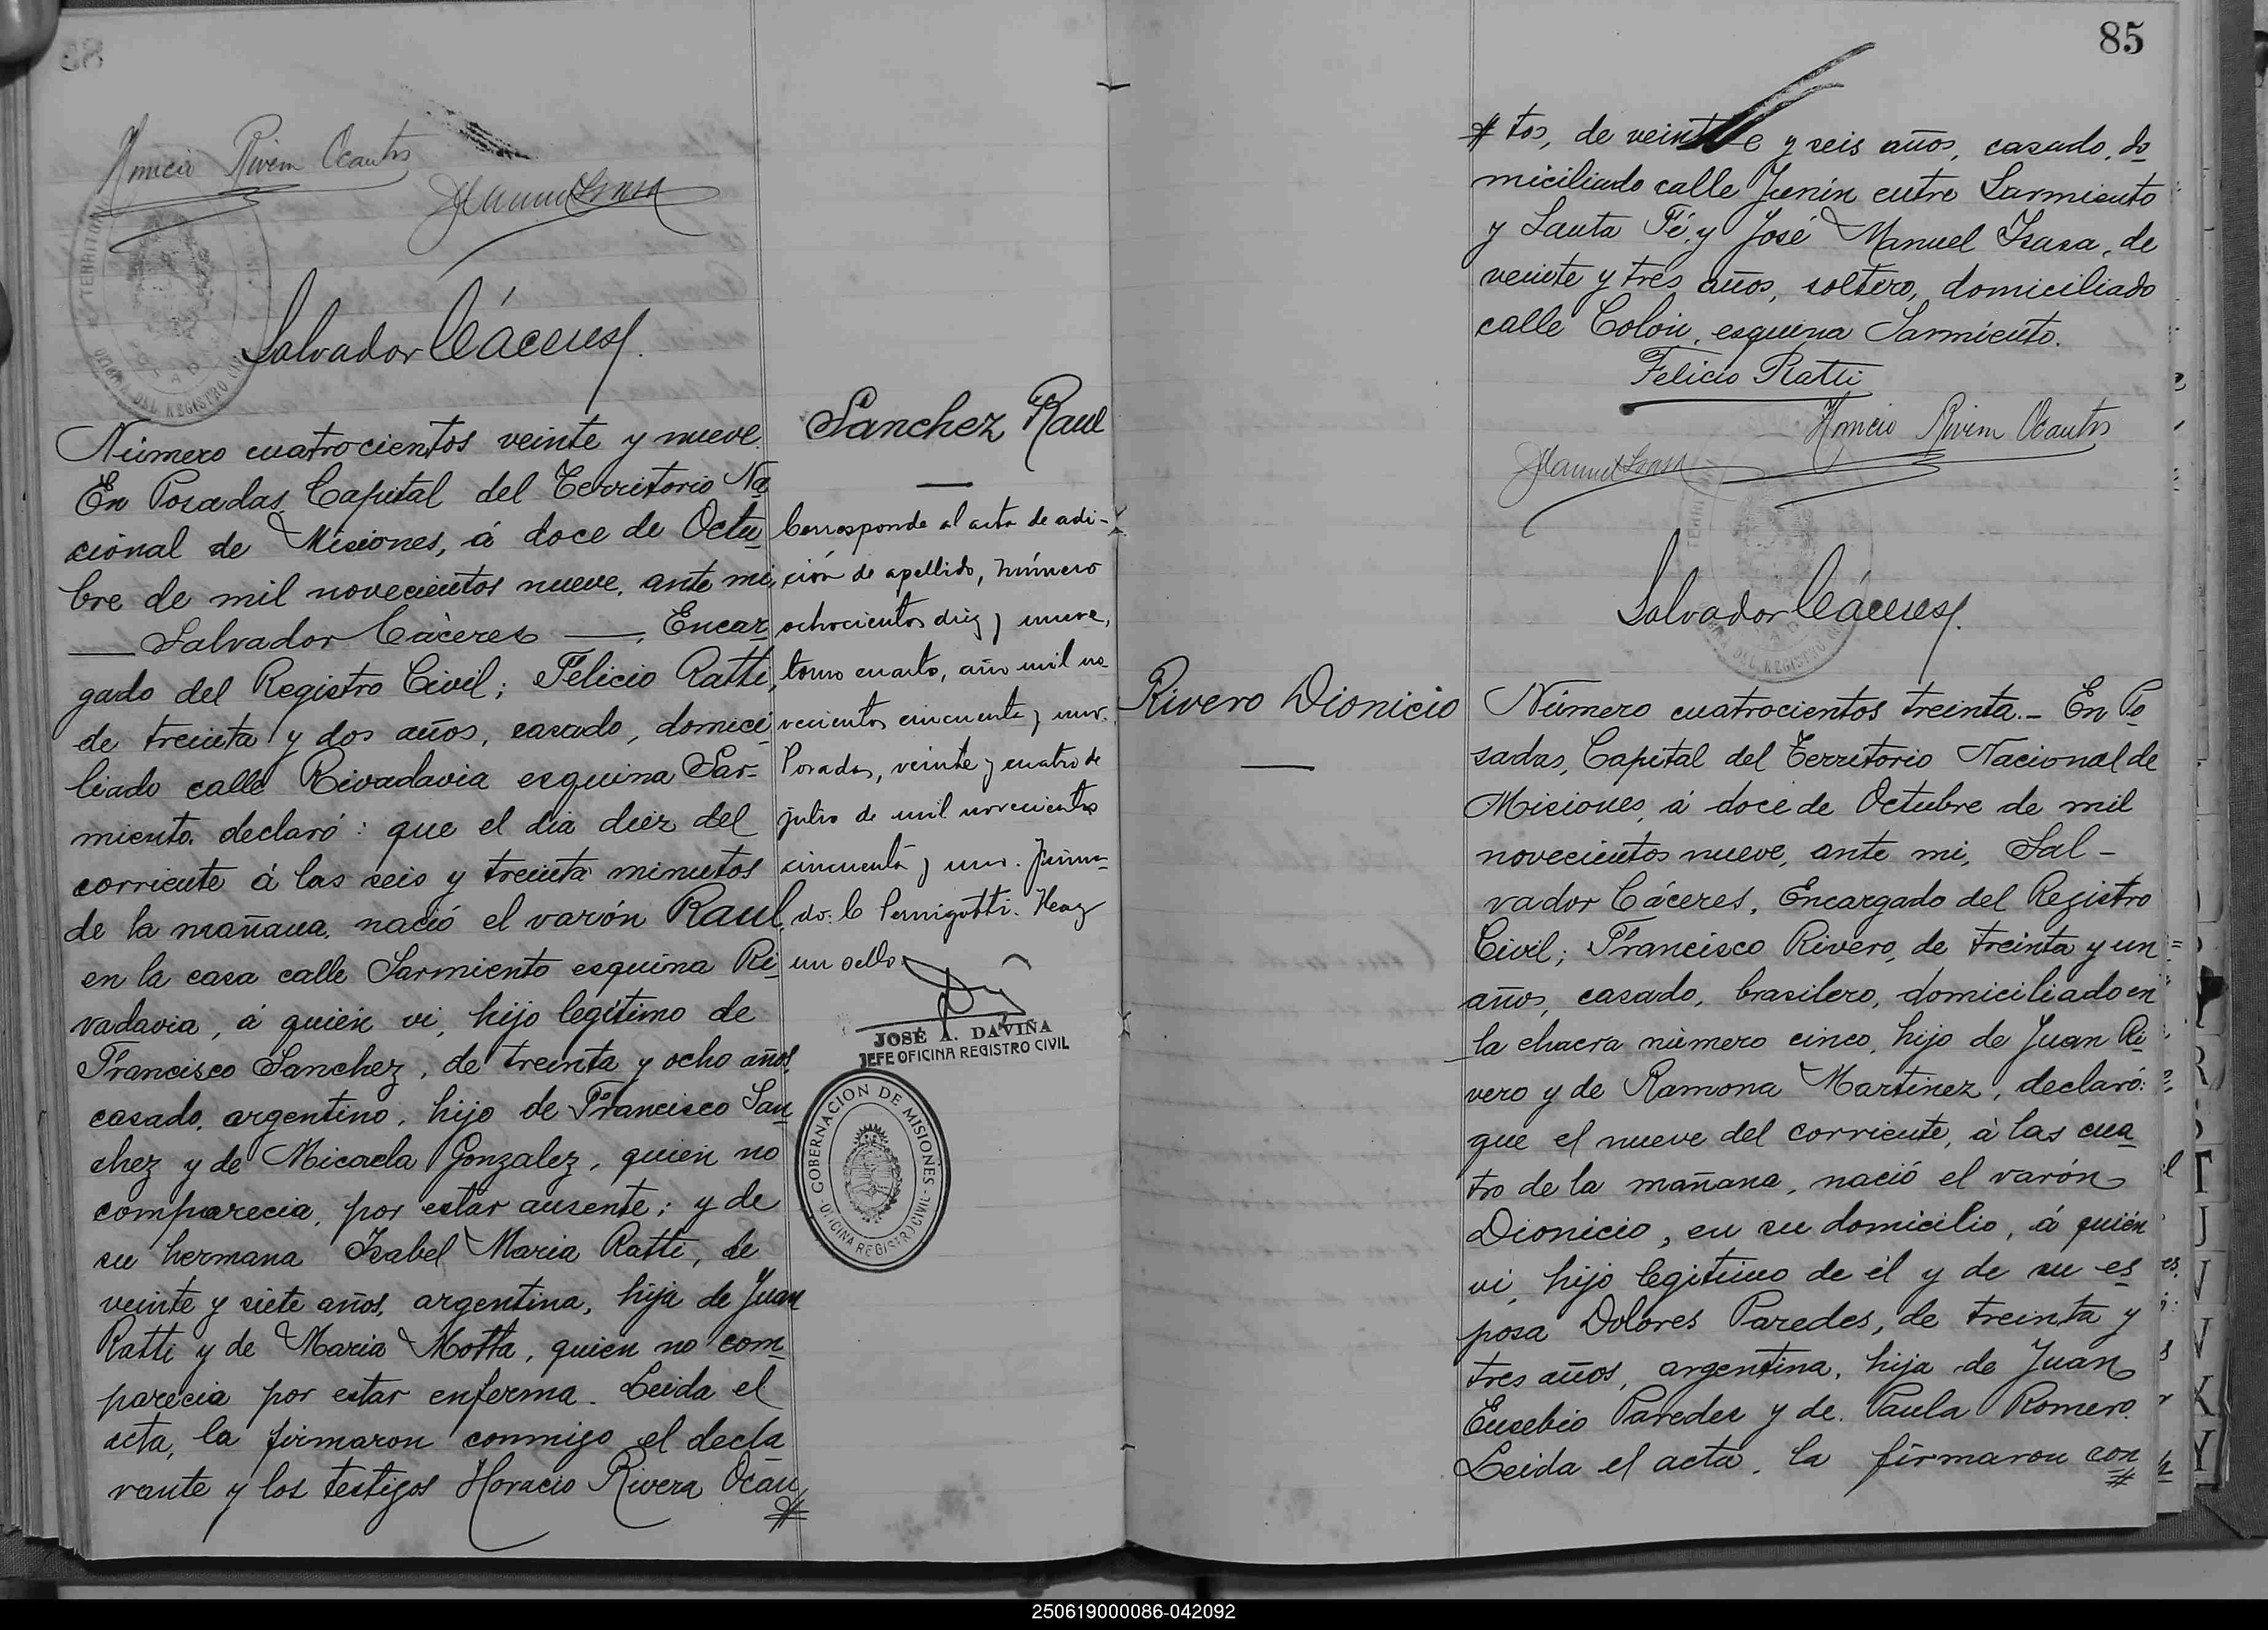 Horacio Rivera Ocantos
JManuel Isasa
Salvador Cáceres
Número cuatrocientos veinte y nueve.
En Posadas, Capital del Territorio Na
cional de Misiones, á doce de Octu
bre de mil novecientos nueve, ante mi,
Salvador Cáceres, Encar
gado del Registro Civil; Felicio Ratti,
de treinta y dos años, casado, domici
liado calle Rivadavia esquina Sar-
miento, declaró: que el dia diez del
corriente á las seis y treinta minutos
de la mañana, nació el varón Raul,
en la casa calle Sarmiento esquina Ri
vadavia, á quién vi, hijo legítimo de
Francisco Sanchez, de treinta y ocho años,
casado, argentino, hijo de Francisco San
chez y de Micaela Gonzalez, quien no
comparecia, por estar ausente; y de
su hermana Isabel Maria Ratti, de
veinte y siete años, argentina, hija de Juan
Ratti y de Maria Motta, quien no com
parecia por estar enferma. Leida el
acta, la firmaron conmigo el decla
rante y los testigos Horacio Rivera Ocan
#
Sanchez Raul
Corresponde al acta de adi-
ción de apellido, número
ochocientos diez y nueve,
tomo cuarto, año mil no-
vecientos cincuenta y uno.
Posadas, veinte y cuatro de
julio de mil novecientos
cincuenta y uno. Firma-
do: C Pernigotti. Hay
un sello.
JOSÉ A. DAVIÑA
JEFE OFICINA REGISTRO CIVIL
GOBERNACION DE MISIONES
OFICINA REGISTRO CIVIL
85
# tos, de veinte y seis años, casado, do
miciliado calle Junin entre Sarmiento
y Santa Fé, y José Manuel Isasa, de
veinte y tres años, soltero, domiciliado
calle Colón, esquina Sarmiento.
Felicio Ratti
Horacio Rivera Ocantos
JManuel Isasa
Salvador Cáceres
Rivero Dionicio
Número cuatrocientos treinta.- En Po
sadas, Capital del Territorio Nacional de
Misiones, á doce de Octubre de mil
novecientos nueve, ante mi, Sal-
vador Cáceres, Encargado del Registro
Civil; Francisco Rivero, de treinta y un
años, casado, brasilero, domiciliado en
la chacra número cinco, hijo de Juan Ri
vero y de Ramona Martinez, declaró:
que el nueve del corriente, á las cua
tro de la mañana, nació el varón
Dionicio, en su domicilio, á quién
vi, hijo legitimo de él y de su es
posa Dolores Paredes, de treinta y
tres años, argentina, hija de Juan
Eusebio Paredes y de Paula Romero.
Leida el acta, la firmaron con
#
250619000086-042092